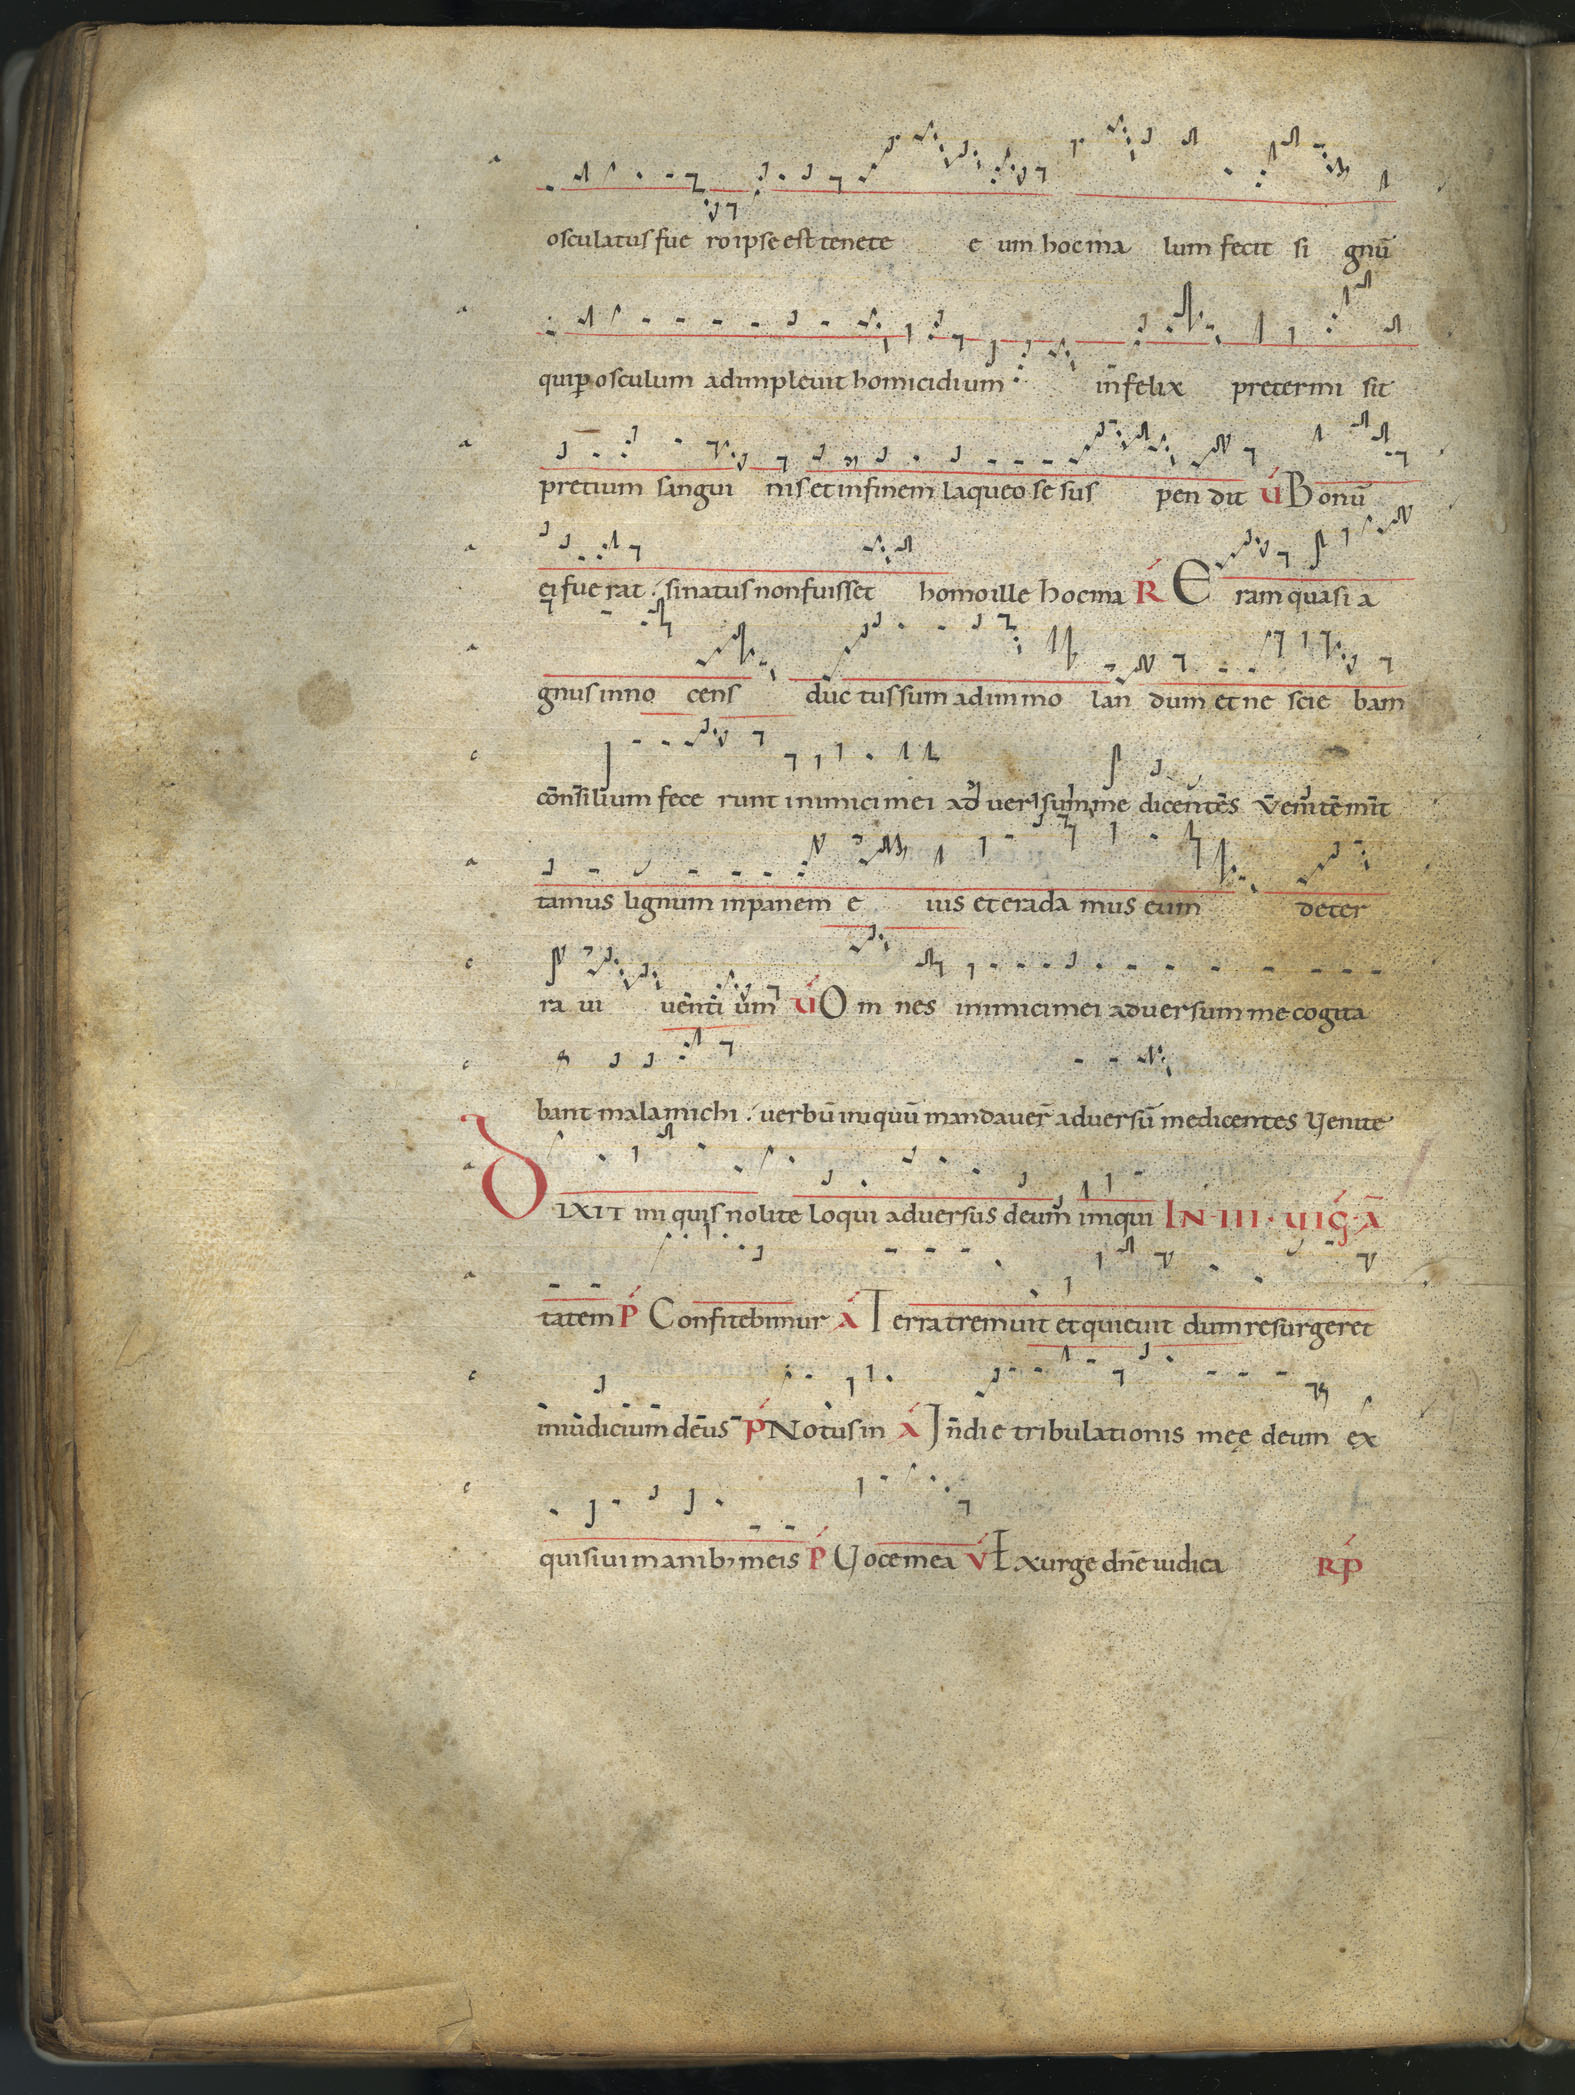 osculatus fue ro ipse est tenete e um hoc ma lum fecit si gnū
qui ꝑ osculum adimplevit homicidium infelix pretermi sit
pretium sangui nis et in finem laqueo se sus pen dit V̓ Bonū
ei fue rat si natus non fuisset homo ille hoc ma R̓ E ram quasi a
gnus inno cens duc tus sum ad immo lan dum et ne scie bam
consilium fece runt inimici mei ad versum me dicentes venite mit
tamus lignum in panem e ius et erada mus eum de ter
ra vi venti um V̓ O m nes inimici mei adversum me cogita
bant mala michi verbū iniquū mandaver̄ adversū me dicentes Venite
DIXIT iniquis nolite loqui adversus deum iniqui IN · III · VIG · A
tatem P̓ Confitebimur A̓ Terra tremuit et quievit dum resurgeret
in iudicium deus P̓ Notus in A̓ In die tribulationis meę deum ex
quisivi manib; meis P̓ Voce mea V̓ Exurge dn̄e iudica RP̓
a
a
a
a
a
c
a
c
c
a
a
c
c